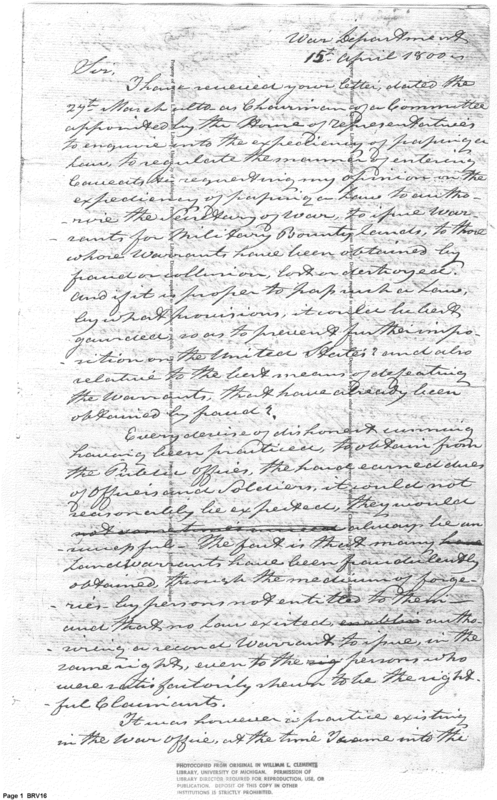 War Department
15th April 1800
Sir,
I have received your letter, dated the
27th March ulto as Chairman of a Committee
appointed by the House of representatives
to enquire into the expediency of passing a
Law, to regulate the manner of entering
Caveats, & requesting my opinion on the
expediency of passing a Law to autho-
-rize the Secretary of War, to issue War-
-rants for Military Bounty Lands, to those
whose Warrants have been obtained by
fraud or collusion, lost or destroyed.
and if it is proper to pass such a Law,
by what provisions, it could be best
guarded, so as to prevent further impo-
-sition on the United States? and also
relative to the best means of defeating
the Warrants, that have already been
obtained by fraud?
Every devise of dishonest cunning
having been practiced, to obtain from
the Public Offices, the hard earned dues
of Officers and Soldiers, it could not
reasonably be expected, they would
always be un-
-successful - The fact is that many
Land warrants have been fraudulently
obtained, through the medium of forge-
-ries by persons not entitled to them—
and that no Law existed, autho-
-rizing a second Warrant to issue, in the
same rights, even to the persons who
were satisfactorily shewn to be the right-
-ful Claimants.
It was however a practice existing
in the War Office, at the time I came into the
PHOTOCOPIED FROM ORIGINAL IN WILLIAM L. CLEMENTS
LIBRARY, UNIVERSITY OF MICHIGAN. PERMISSION OF
LIBRARY DIRECTOR REQUIRED FOR REPRODUCTION, USE, OR
PUBLICATION. DEPOSIT OF THIS COPY IN OTHER
INSTITUTIONS IS STRICTLY PROHIBITED.
Page 1 BRV16